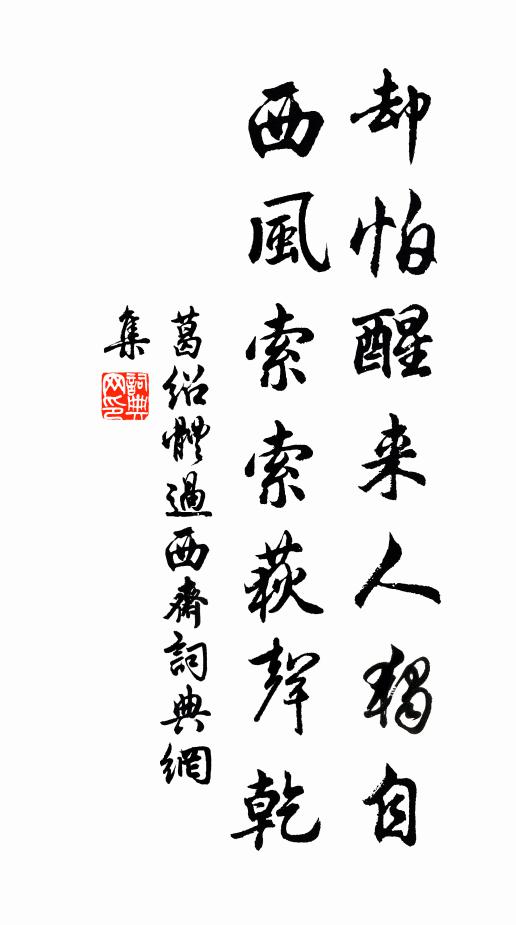 却怕醒来人獨自
西風索索荻聲乾
葛紹體過西齋詞典網
集
詞典
网印